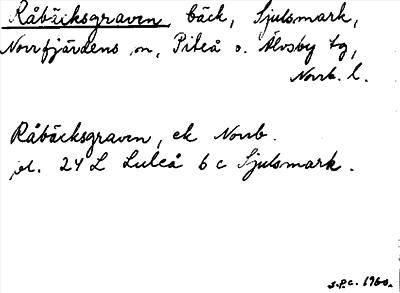 Råbäcksgraven, bäck, Sjulsmark,
Norrfjärdens sn, Piteå o. Älvsby tg,
Norrb. l.
Råbäcksgraven, ek Norrb.
bl. 24 L Luleå 6 c Sjulsmark.
S.P.C. 1960.